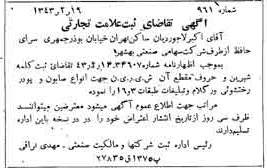 شماره ۹۶۱ ۱۹ر۲ر۱۳۴۳
آگهی تقاضای ثبت علامت تجارتی
آقای اکبر لاجوردیان ساکن تهران خیابان بوذرجمهری سرای
حافظ از طرف شرکت سهامی صنعتی بهشهر
بموجب اظهارنامه شماره ۳۴۶۰۷ر۱۴ر۲ر۴۳ تقاضای ثبت کلمه
شیرین و حروف مقطع آن ش.ی.ر.ی.ن جهت انواع صابون و پودر
رختشوئی و رکلام و تبلیغات طبقات ۳و۱۶ را نموده
مراتب جهت اطلاع عموم آگهی میشود معترضین میتوانند
ظرف سی روز از تاریخ انتشار اعتراض خود را در دو نسخه باین اداره
تسلیم دارند
رئیس اداره ثبت شرکتها و مالکیت صنعتی . مهدی نراقی
۲۷۸۳۵ ق ۱۳۷۵ پ